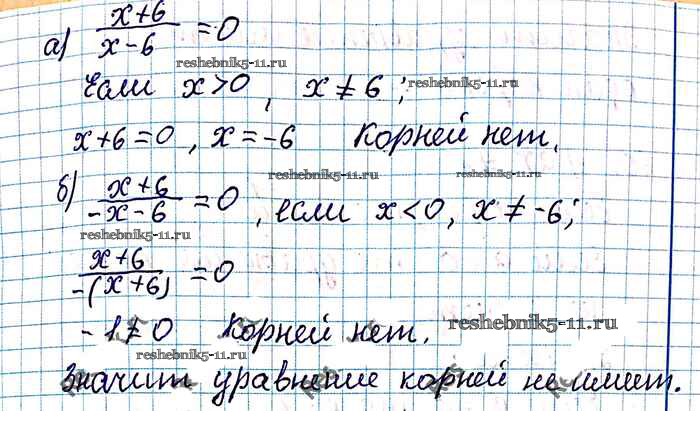 а) x+6 / x−6 = 0
reshebnik5-11.ru
Если x>0, x≠6;
reshebnik5-11.ru
x+6=0, x=−6 Корней нет.
reshebnik5-11.ru
reshebnik5-11.ru
б) x+6 / −x−6 = 0, если x<0, x≠−6;
reshebnik5-11.ru
x+6 / −(x+6) = 0
−1≠0 Корней нет.
reshebnik5-11.ru
reshebnik5-11.ru
Значит уравнение корней не имеет.